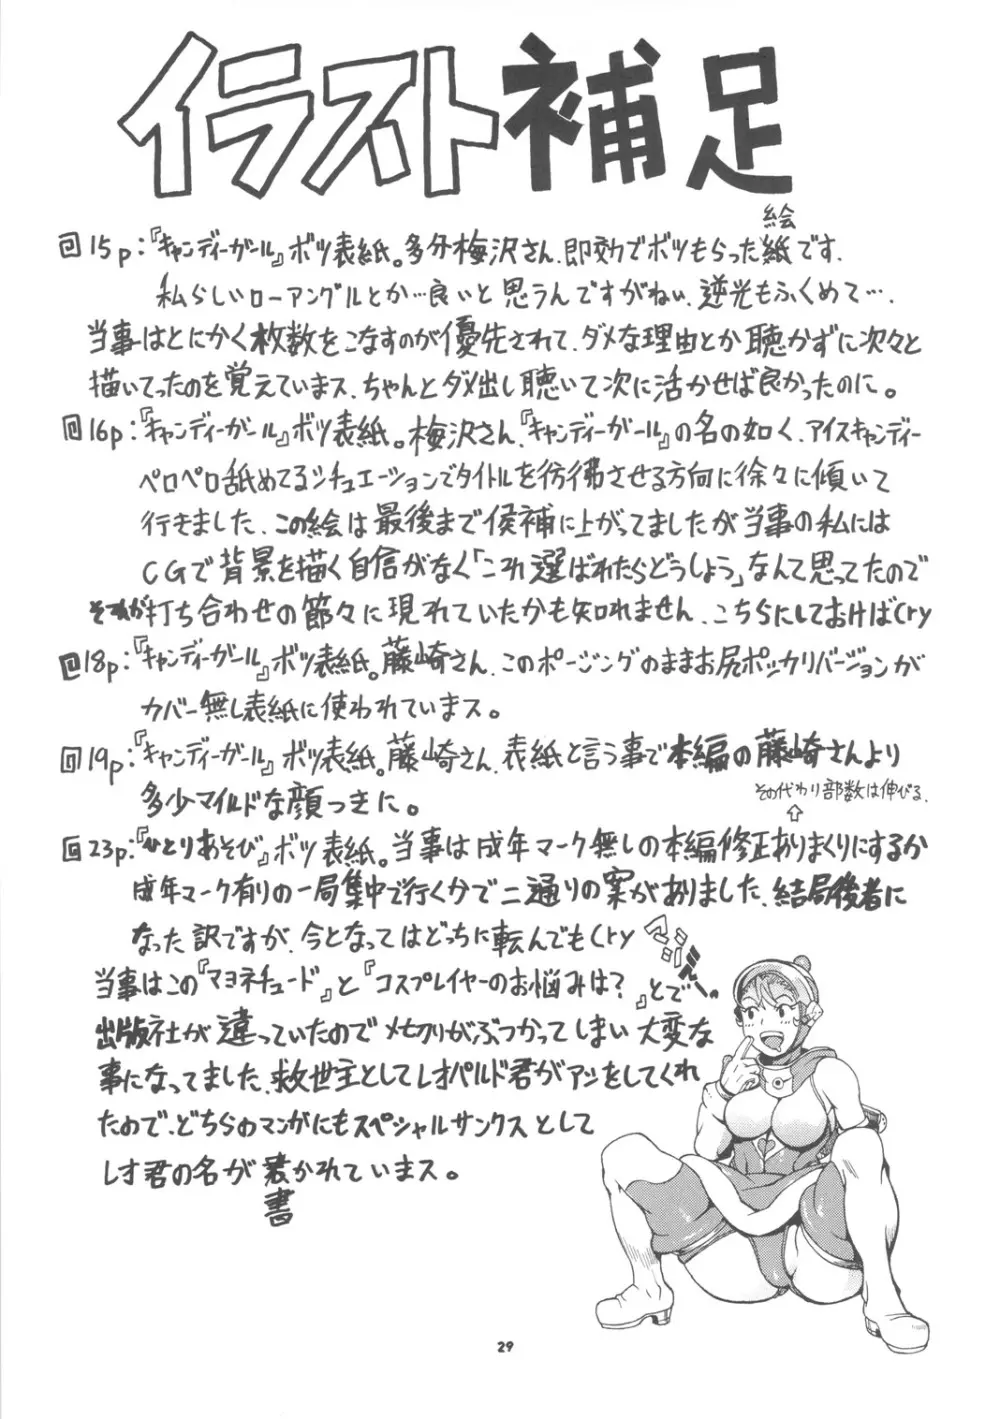 イラスト補足
絵
15p:『キャンディーガール』ボツ表紙。多分梅沢さん、即効でボツもらった紙です、
私らしいローアングルとか…良いと思うんですがねぃ、逆光もふくめて…、
当事はとにかく枚数をこなすのが優先されて、ダメな理由とか聴かずに次々と
描いてったのを覚えていまス、ちゃんとダメ出し聴いて次に活かせば良かったのに。
16p:『キャンディーガール』ボツ表紙。梅沢さん、『キャンディーガール』の名の如く、アイスキャンディー
ペロペロ舐めてるシチュエーションでタイトルを彷彿させる方向に徐々に傾いて
行きました、この絵は最後まで候補に上がってましたが当事の私には
CGで背景を描く自信がなく「これ選ばれたらどうしよう」なんて思ってたので
それが打ち合わせの節々に現れていたかも知れません、こちらにしておけば(ry
18p:『キャンディーガール』ボツ表紙。藤崎さん、このポージングのままお尻ポッカリバージョンが
カバー無し表紙に使われていまス。
19p:『キャンディーガール』ボツ表紙。藤崎さん、表紙と言う事で本編の藤崎さんより
多少マイルドな顔つきに。
その代わり部数は伸びる、
23p:『ひとりあそび』ボツ表紙。当事は成年マーク無しの本編修正ありまくりにするか
成年マーク有りの一局集中で行く分で二通りの案がありました、結局後者に
なった訳ですが、今となってはどっちに転んでも(ry
マジで
当事はこの『マヨネチュード』と『コスプレイヤーのお悩みは?』とで
出版社が違っていたのでメセクリがぶつかってしまい大変な
事になってました、救世主としてレオパルド君がアシをしてくれ
たので、どちらのマンガにもスペシャルサンクスとして
レオ君の名が書かれていまス。
書
29